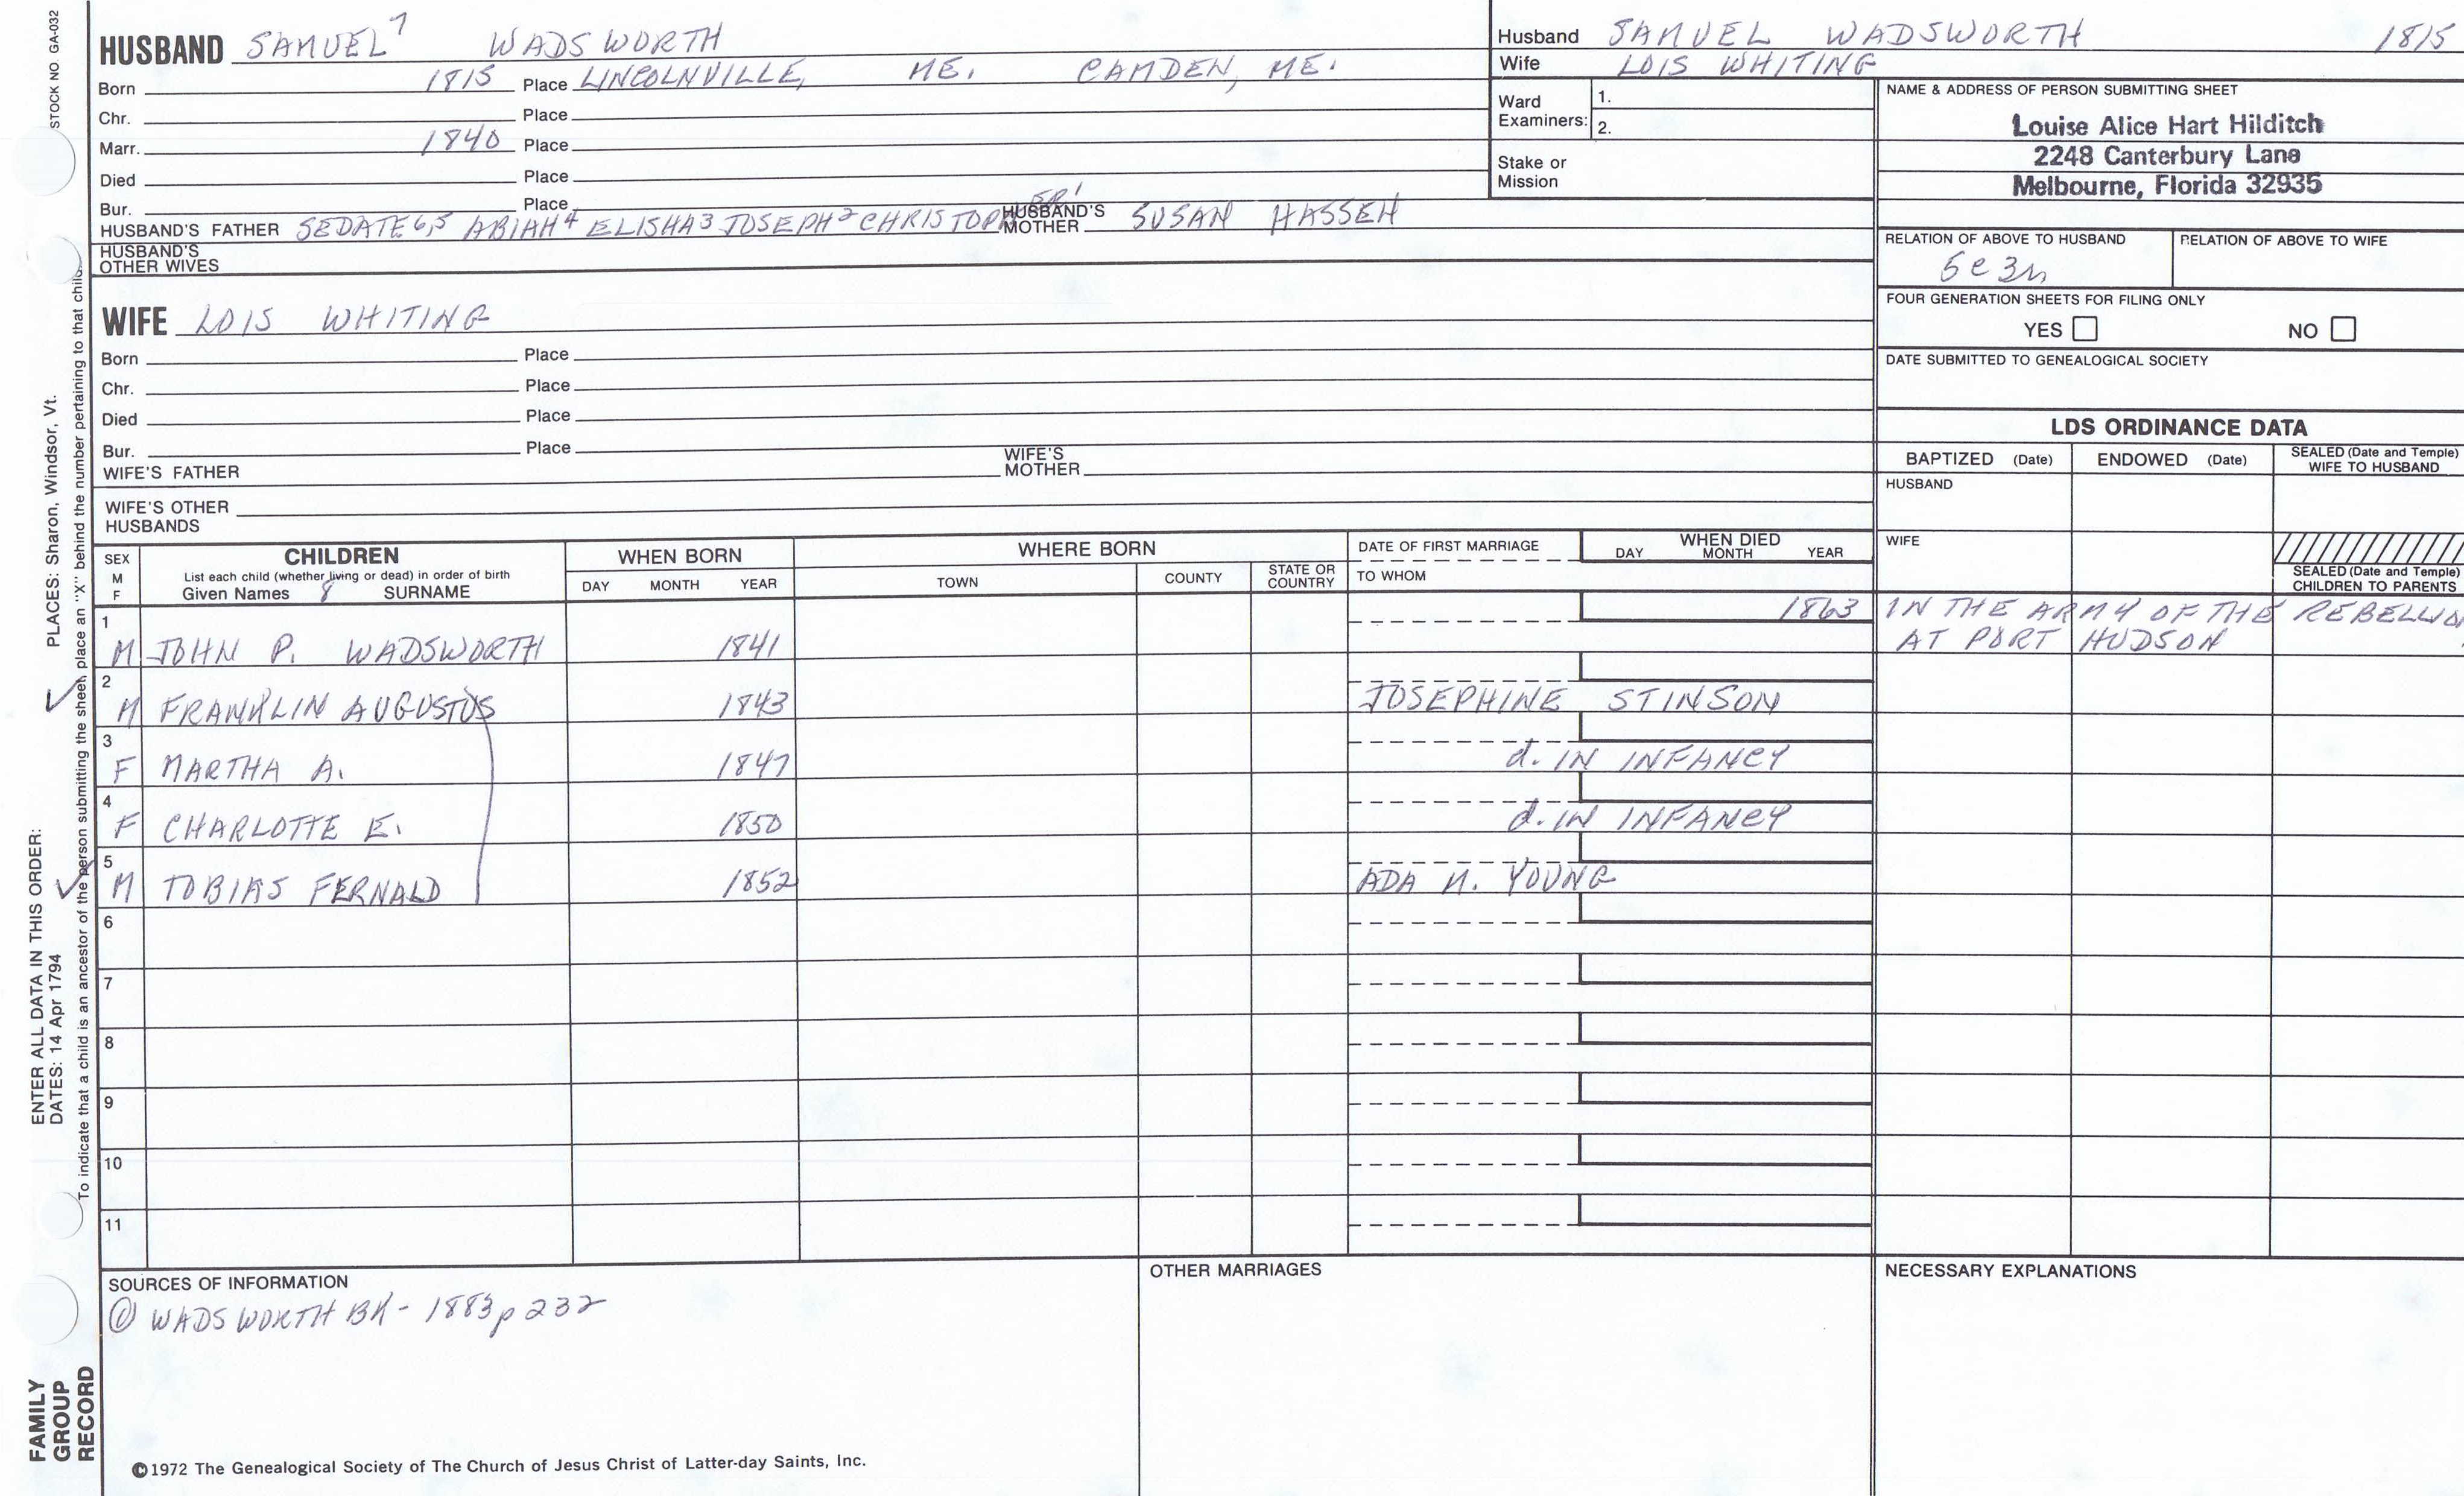 STOCK NO. GA-032
HUSBAND SAMUEL 7 WADSWORTH
Born 1815 Place LINCOLNVILLE, ME. CAMDEN, ME.
Chr. Place
Marr. 1840 Place
Died Place
Bur. Place
HUSBAND'S FATHER SEDATE 6,5 ABIAH 4 ELISHA 3 JOSEPH 2 CHRISTOPHER 1 HUSBAND'S MOTHER SUSAN HASSEH
HUSBAND'S OTHER WIVES
Husband SAMUEL WADSWORTH 1815
Wife LOIS WHITING
Ward Examiners: 1.
2.
Stake or Mission
NAME & ADDRESS OF PERSON SUBMITTING SHEET
Louise Alice Hart Hilditch
2248 Canterbury Lane
Melbourne, Florida 32935
RELATION OF ABOVE TO HUSBAND RELATION OF ABOVE TO WIFE
5c3r
FOUR GENERATION SHEETS FOR FILING ONLY
YES NO
DATE SUBMITTED TO GENEALOGICAL SOCIETY
WIFE LOIS WHITING
Born Place
Chr. Place
Died Place
Bur. Place
WIFE'S FATHER WIFE'S MOTHER
WIFE'S OTHER HUSBANDS
LDS ORDINANCE DATA
BAPTIZED (Date) ENDOWED (Date) SEALED (Date and Temple) WIFE TO HUSBAND
HUSBAND
WIFE
SEALED (Date and Temple) CHILDREN TO PARENTS
SEX M F CHILDREN WHEN BORN WHERE BORN DATE OF FIRST MARRIAGE WHEN DIED
List each child (whether living or dead) in order of birth
Given Names 8 SURNAME DAY MONTH YEAR TOWN COUNTY STATE OR COUNTRY TO WHOM DAY MONTH YEAR
1 M JOHN P. WADSWORTH 1841 1863 IN THE ARMY OF THE REBELLIO
AT PORT HUDSON
2 M FRANKLIN AUGUSTUS 1843 JOSEPHINE STINSON
3 F MARTHA A. 1847 d. IN INFANCY
4 F CHARLOTTE E. 1850 d. IN INFANCY
5 M TOBIAS FERNALD 1852 ADA N. YOUNG
6
7
8
9
10
11
SOURCES OF INFORMATION OTHER MARRIAGES NECESSARY EXPLANATIONS
① WADSWORTH BK - 1883 p 232
©1972 The Genealogical Society of The Church of Jesus Christ of Latter-day Saints, Inc.
FAMILY
GROUP
RECORD
ENTER ALL DATA IN THIS ORDER:
DATES: 14 Apr 1794 PLACES: Sharon, Windsor, Vt.
To indicate that a child is an ancestor of the person submitting the sheet, place an "X" behind the number pertaining to that child.